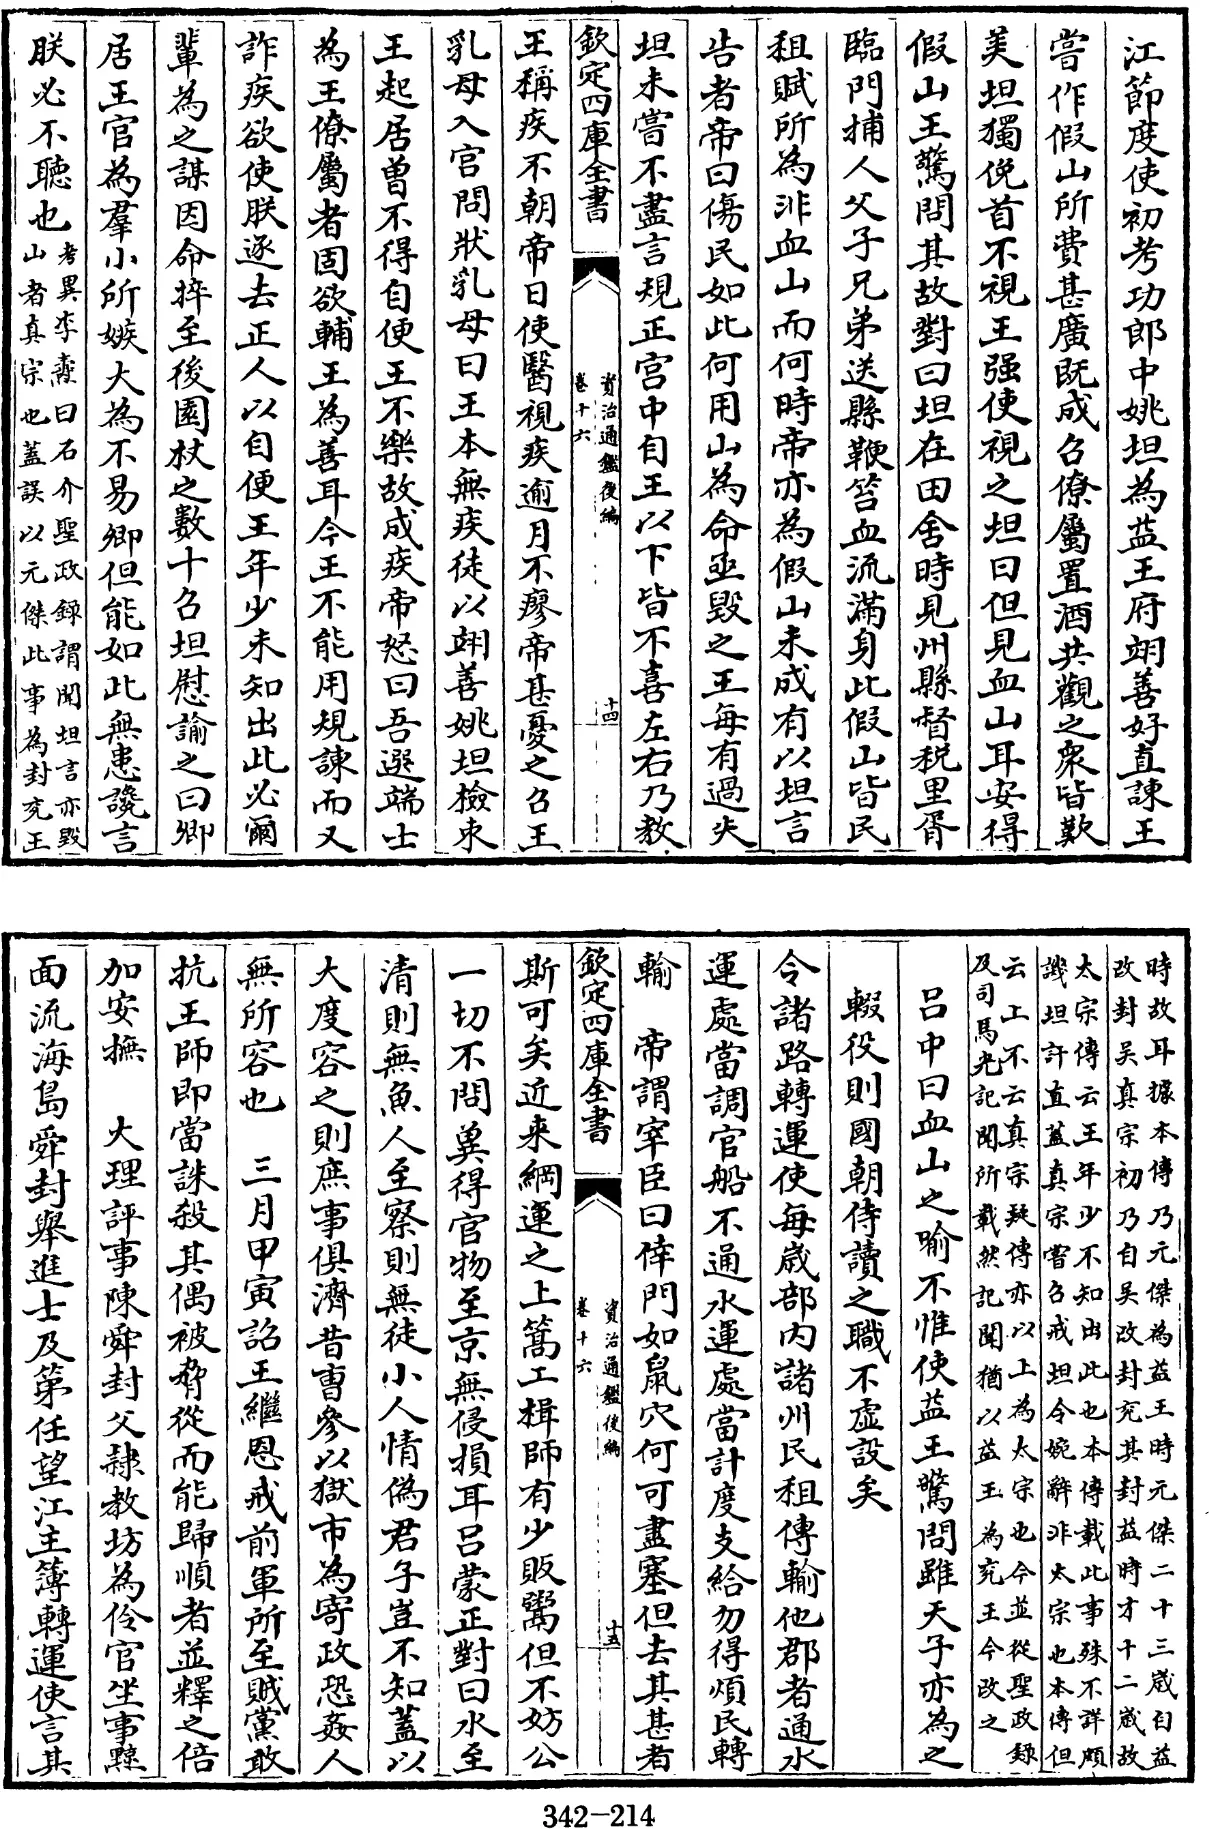 江節度使初考功郎中姚坦為益王府翊善好直諫王
嘗作假山所費甚廣既成召僚屬置酒共觀之衆皆歎
美坦獨俛首不視王强使視之坦曰但見血山耳安得
假山王驚問其故對曰坦在田舍時見州縣督税里胥
臨門捕人父子兄弟送縣鞭笞血流滿身此假山皆民
租賦所為非血山而何時帝亦為假山未成有以坦言
告者帝曰傷民如此何用山為命亟毁之王每有過失
坦未嘗不盡言規正宫中自王以下皆不喜左右乃教
欽定四庫全書
資治通鑑後編
卷十六
十四
王稱疾不朝帝日使醫視疾逾月不瘳帝甚憂之召王
乳母入宫問狀乳母曰王本無疾徒以翊善姚坦檢束
王起居曽不得自便王不樂故成疾帝怒曰吾選端士
為王僚屬者固欲輔王為善耳今王不能用規諫而又
詐疾欲使朕逐去正人以自便王年少未知出此必爾
輩為之謀因命捽至後園杖之數十召坦慰諭之曰卿
居王官為羣小所嫉大為不易卿但能如此無患讒言
朕必不聽也
考異李燾曰石介聖政録謂聞坦言亦毁
山者真宗也蓋誤以元傑此事為封兖王
時故耳據本傳乃元傑為益王時元傑二十三嵗自益
改封吴真宗初乃自吴改封兖其封益時才十二嵗故
太宗傳云王年少不知出此也本傳載此事殊不詳頗
譏坦訐直蓋真宗嘗召戒坦令婉辭非太宗也本傳但
云上不云真宗疑傳亦以上為太宗也今並從聖政録
及司馬光記聞所載然記聞猶以益王為兖王今改之
吕中曰血山之喻不惟使益王驚問雖天子亦為之
輟役則國朝侍讀之職不虚設矣
令諸路轉運使每嵗部内諸州民租傳輸他郡者通水
運處當調官船不通水運處當計度支給勿得煩民轉
輸　帝謂宰臣曰倖門如鼠穴何可盡塞但去其甚者
欽定四庫全書
資治通鑑後編
卷十六
十五
斯可矣近来綱運之上篙工楫師有少販鬻但不妨公
一切不問兾得官物至京無侵損耳吕蒙正對曰水至
清則無魚人至察則無徒小人情偽君子豈不知蓋以
大度容之則庶事俱濟昔曹參以獄市為寄政恐姦人
無所容也　三月甲寅詔王繼恩戒前軍所至賊黨敢
抗王師即當誅殺其偶被脅從而能歸順者並釋之倍
加安撫　大理評事陳舜封父隸教坊為伶官坐事黥
面流海島舜封舉進士及第任望江主簿轉運使言其
342-214